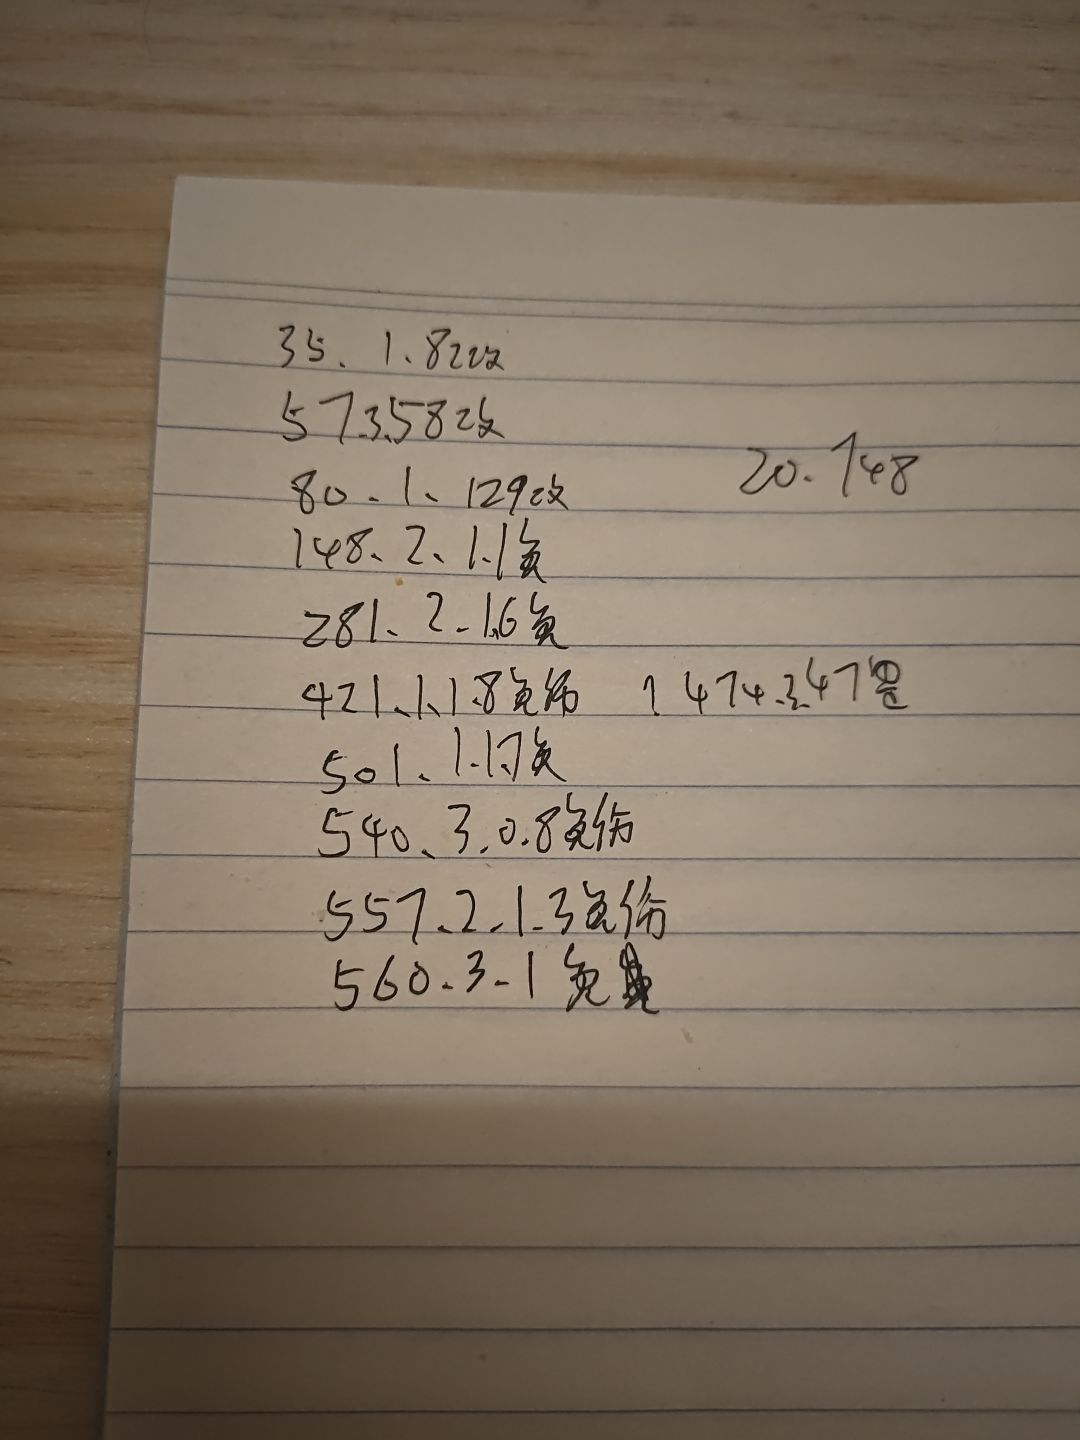 35. 1.82改
573.58改
80.1.129改
20.748
148.2.1.1免
281.2-1.6免
421.1.1.8免伤 1474.2.47
501.1.1.7免
540.3.0.8免伤
557.2.1.3免伤
560.3-1免